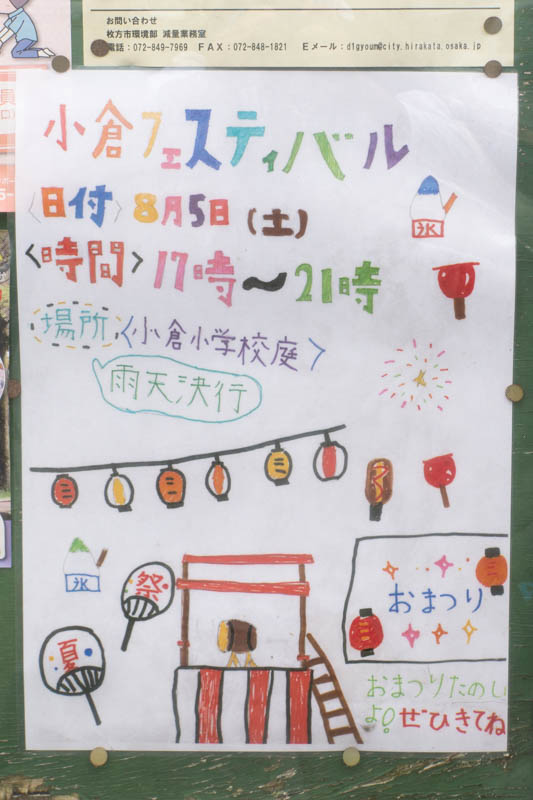 お問い合わせ
枚方市環境部 減量業務室
電話：072-849-7969 FAX：072-848-1821 Eメール：d1gyoum@city.hirakata.osaka.jp
小倉フェスティバル
〈日付〉8月5日(土)
〈時間〉17時～21時
場所〈小倉小学校庭〉
雨天決行
氷
氷
祭
夏
おまつり
おまつりたのし
よ!ぜひきてね